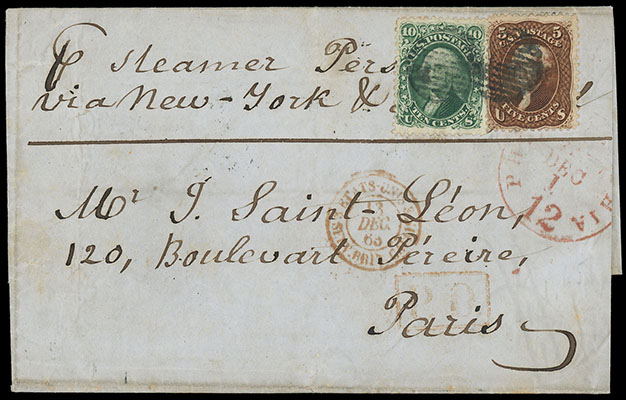 ℘ steamer Pers
via New-York &
10 U.S. POSTAGE 10
TEN CENTS
U S
5 U.S. POSTAGE 5
FIVE CENTS
U S
DEC
1
12
Mr J. Saint-Léon,
ETATS-UNIS
13
DEC.
63
120, Boulevart Péreire,
P.D.
Paris